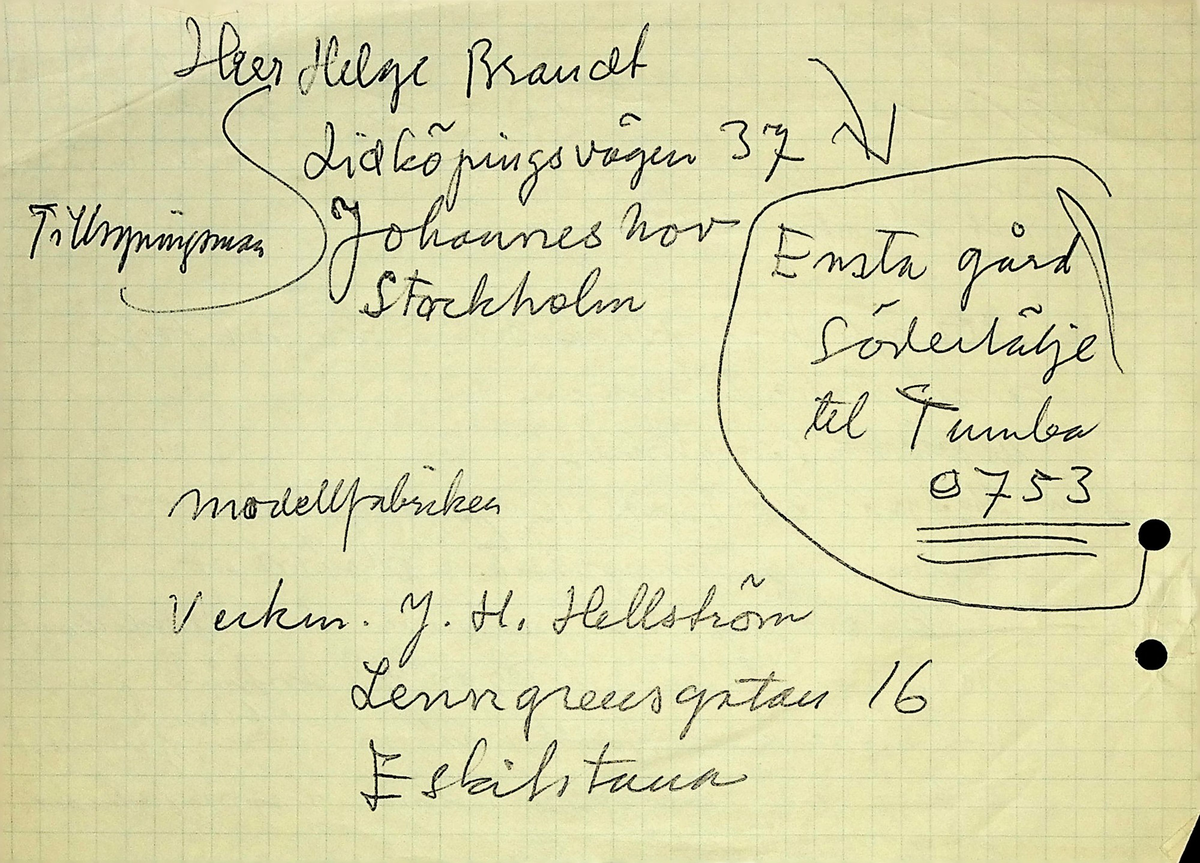 Herr Helge Brandt
Lidköpingsvägen 37
Johanneshov
Stockholm
Ensta gård
Södertälje
tel Tumba
0753
Modellfabriken
Verkm. J. H. Hellström
Lenngrensgatan 16
Eskilstuna